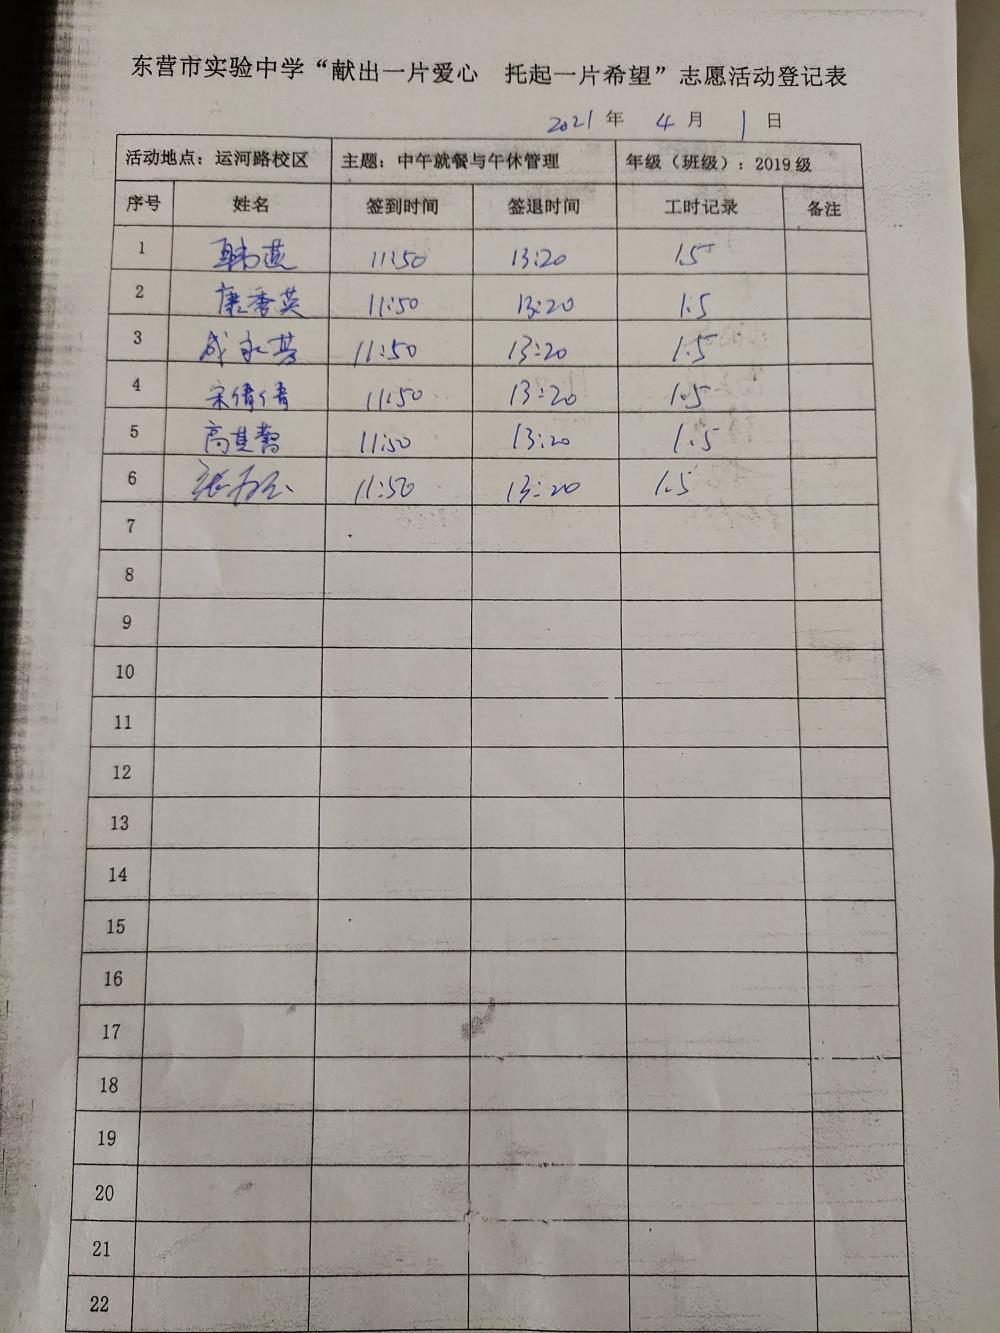 东营市实验中学“献出一片爱心 托起一片希望”志愿活动登记表
2021 年 4 月 1 日
活动地点：运河路校区 主题：中午就餐与午休管理 年级（班级）：2019级
序号 姓名 签到时间 签退时间 工时记录 备注
1 韩燕 11:50 13:20 1.5
2 康秀英 11:50 13:20 1.5
3 成永芬 11:50 13:20 1.5
4 宋倩倩 11:50 13:20 1.5
5 高其 11:50 13:20 1.5
6 张 11:50 13:20 1.5
7
8
9
10
11
12
13
14
15
16
17
18
19
20
21
22